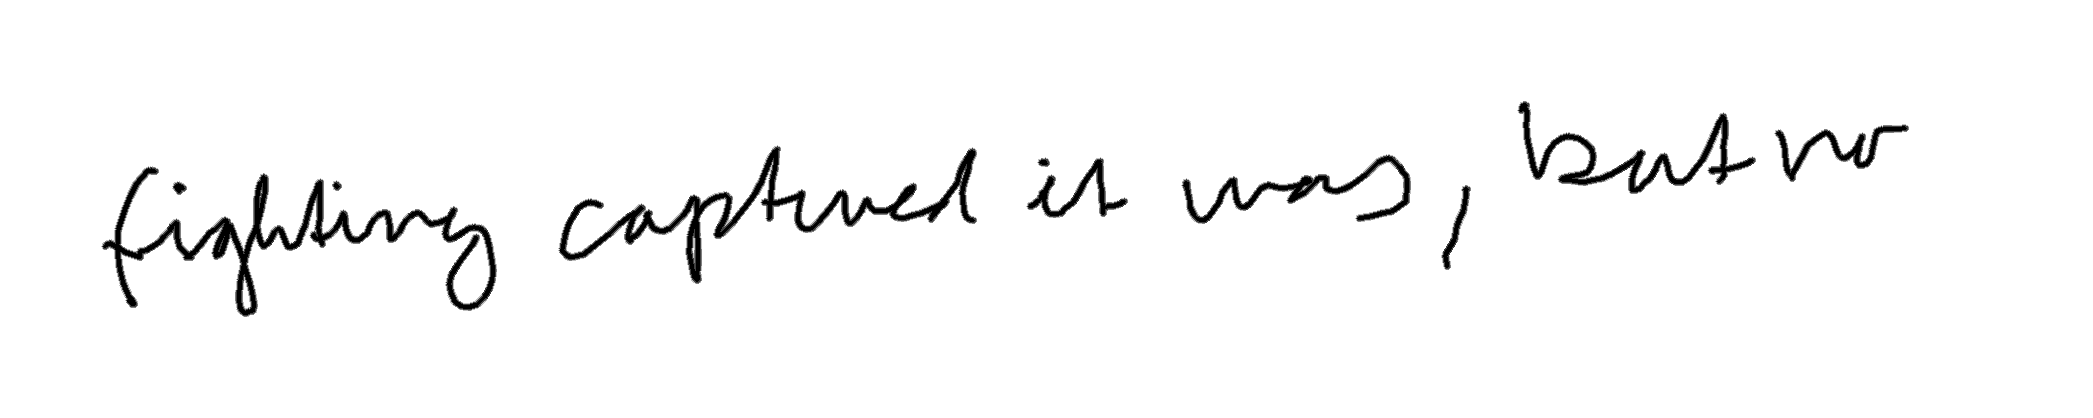 fighting captured it was, but no